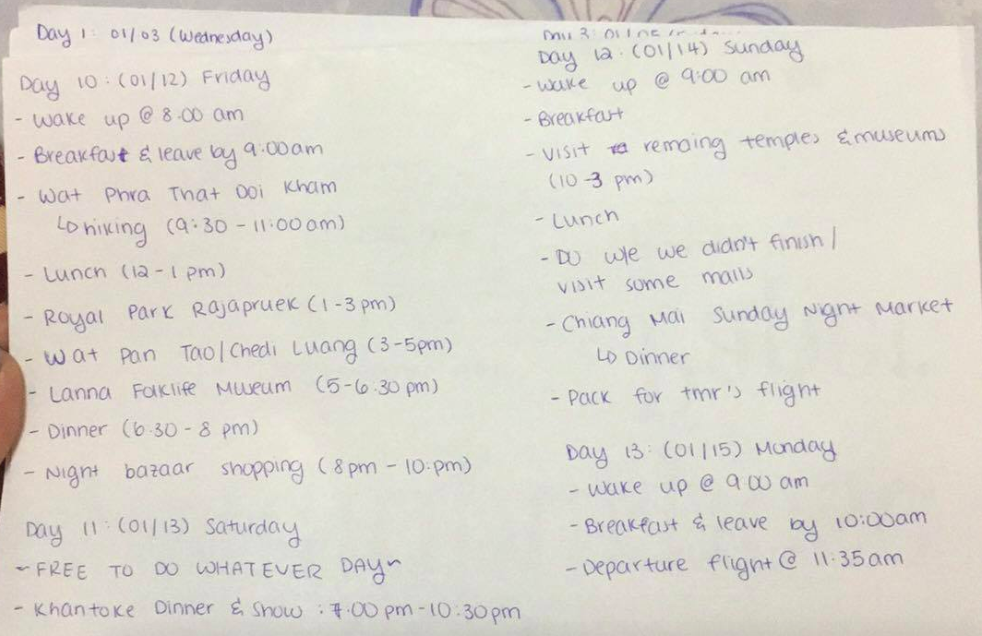 Day 1: 01/03 (Wednesday)
Day 10: (01/12) Friday
- Wake up @ 8:00 am
- Breakfast & leave by 9:00am
- Wat Phra That Doi Kham
↳ hiking (9:30 - 11:00am)
- Lunch (12 - 1 pm)
- Royal Park Rajapruek (1-3pm)
- Wat Pan Tao/Chedi Luang (3-5pm)
- Lanna Folklife Museum (5-6.30pm)
- Dinner (6.30 - 8 pm)
- Night bazaar shopping (8pm - 10:pm)
Day 11: (01/13) Saturday
~FREE TO DO WHATEVER DAY~
- Khantoke Dinner & Show : 7:00 pm - 10:30pm
Day 12: (01/14) Sunday
- Wake up @ 9:00 am
- Breakfast
- Visit remaing temples & museums
(10-3 pm)
- Lunch
- Do w/e we didn't finish /
visit some malls
- Chiang Mai Sunday Night Market
↳ Dinner
- Pack for tmr's flight
Day 13: (01/15) Monday
- Wake up @ 9:00 am
- Breakfast & leave by 10:00am
- Departure flight @ 11:35am